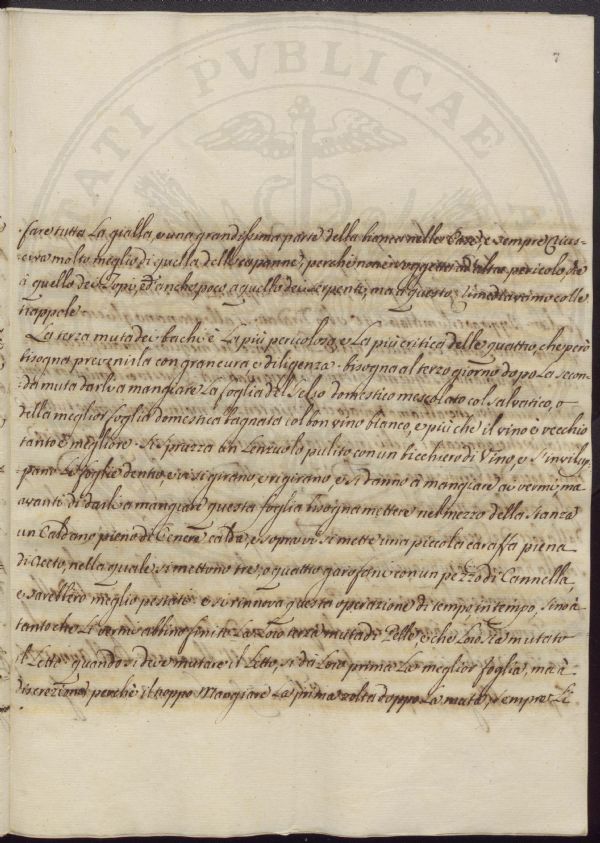 7
PVBLICAE
fare tutta La gialla, e una grandissima parte della bianca nelle Case, e sempre rius-
cirà molto meglio di quella delle capanne, perchè non è soggetta ad altro pericolo, che
à quello dei Topi, ed anche poco a quello dei serpenti, ma a questo rimediarsimo colle
trappole.
La terza muta dei bachi è La più pericolosa e La più critica delle quattro, che però
bisogna prevenirla con gran cura, e diligenza. bisogna al terzo giorno dopo La secon-
da muta darli a mangiare La foglia del Selso domestico mescolato col salvatico, o
della meglior foglia domestica bagnata col bon vino bianco, e più che il vino è vecchio
tanto è megliore. Si sprazza un Lenzuolo pulito con un bicchiero di Vino, e s'invilup-
pano Le foglie dentro, e vi si girano, e rigirano, e si danno à mangiare ai vermi, ma
avanti di darli a mangiare questa foglia bisogna mettere nel mezzo della Stanza
un Caldano pieno di Cenere calda, e sopra vi si mette una piccola caraffa piena
di Aceto, nella quale si mettono tre, o quattro garofani con un pezzo di Cannella,
e sarebbero meglio pestati: e si rinnova questa operazione di tempo in tempo, sino à
tanto che Li vermi abbino finito La Loro terza muta di Pelle, e che Loro sia mutato
il Letto, quando si deve mutare il Letto, si dà Loro prima La meglior foglia, ma à
discrezione perchè il troppo Mangiare La prima volta doppo La muta, sempre Li